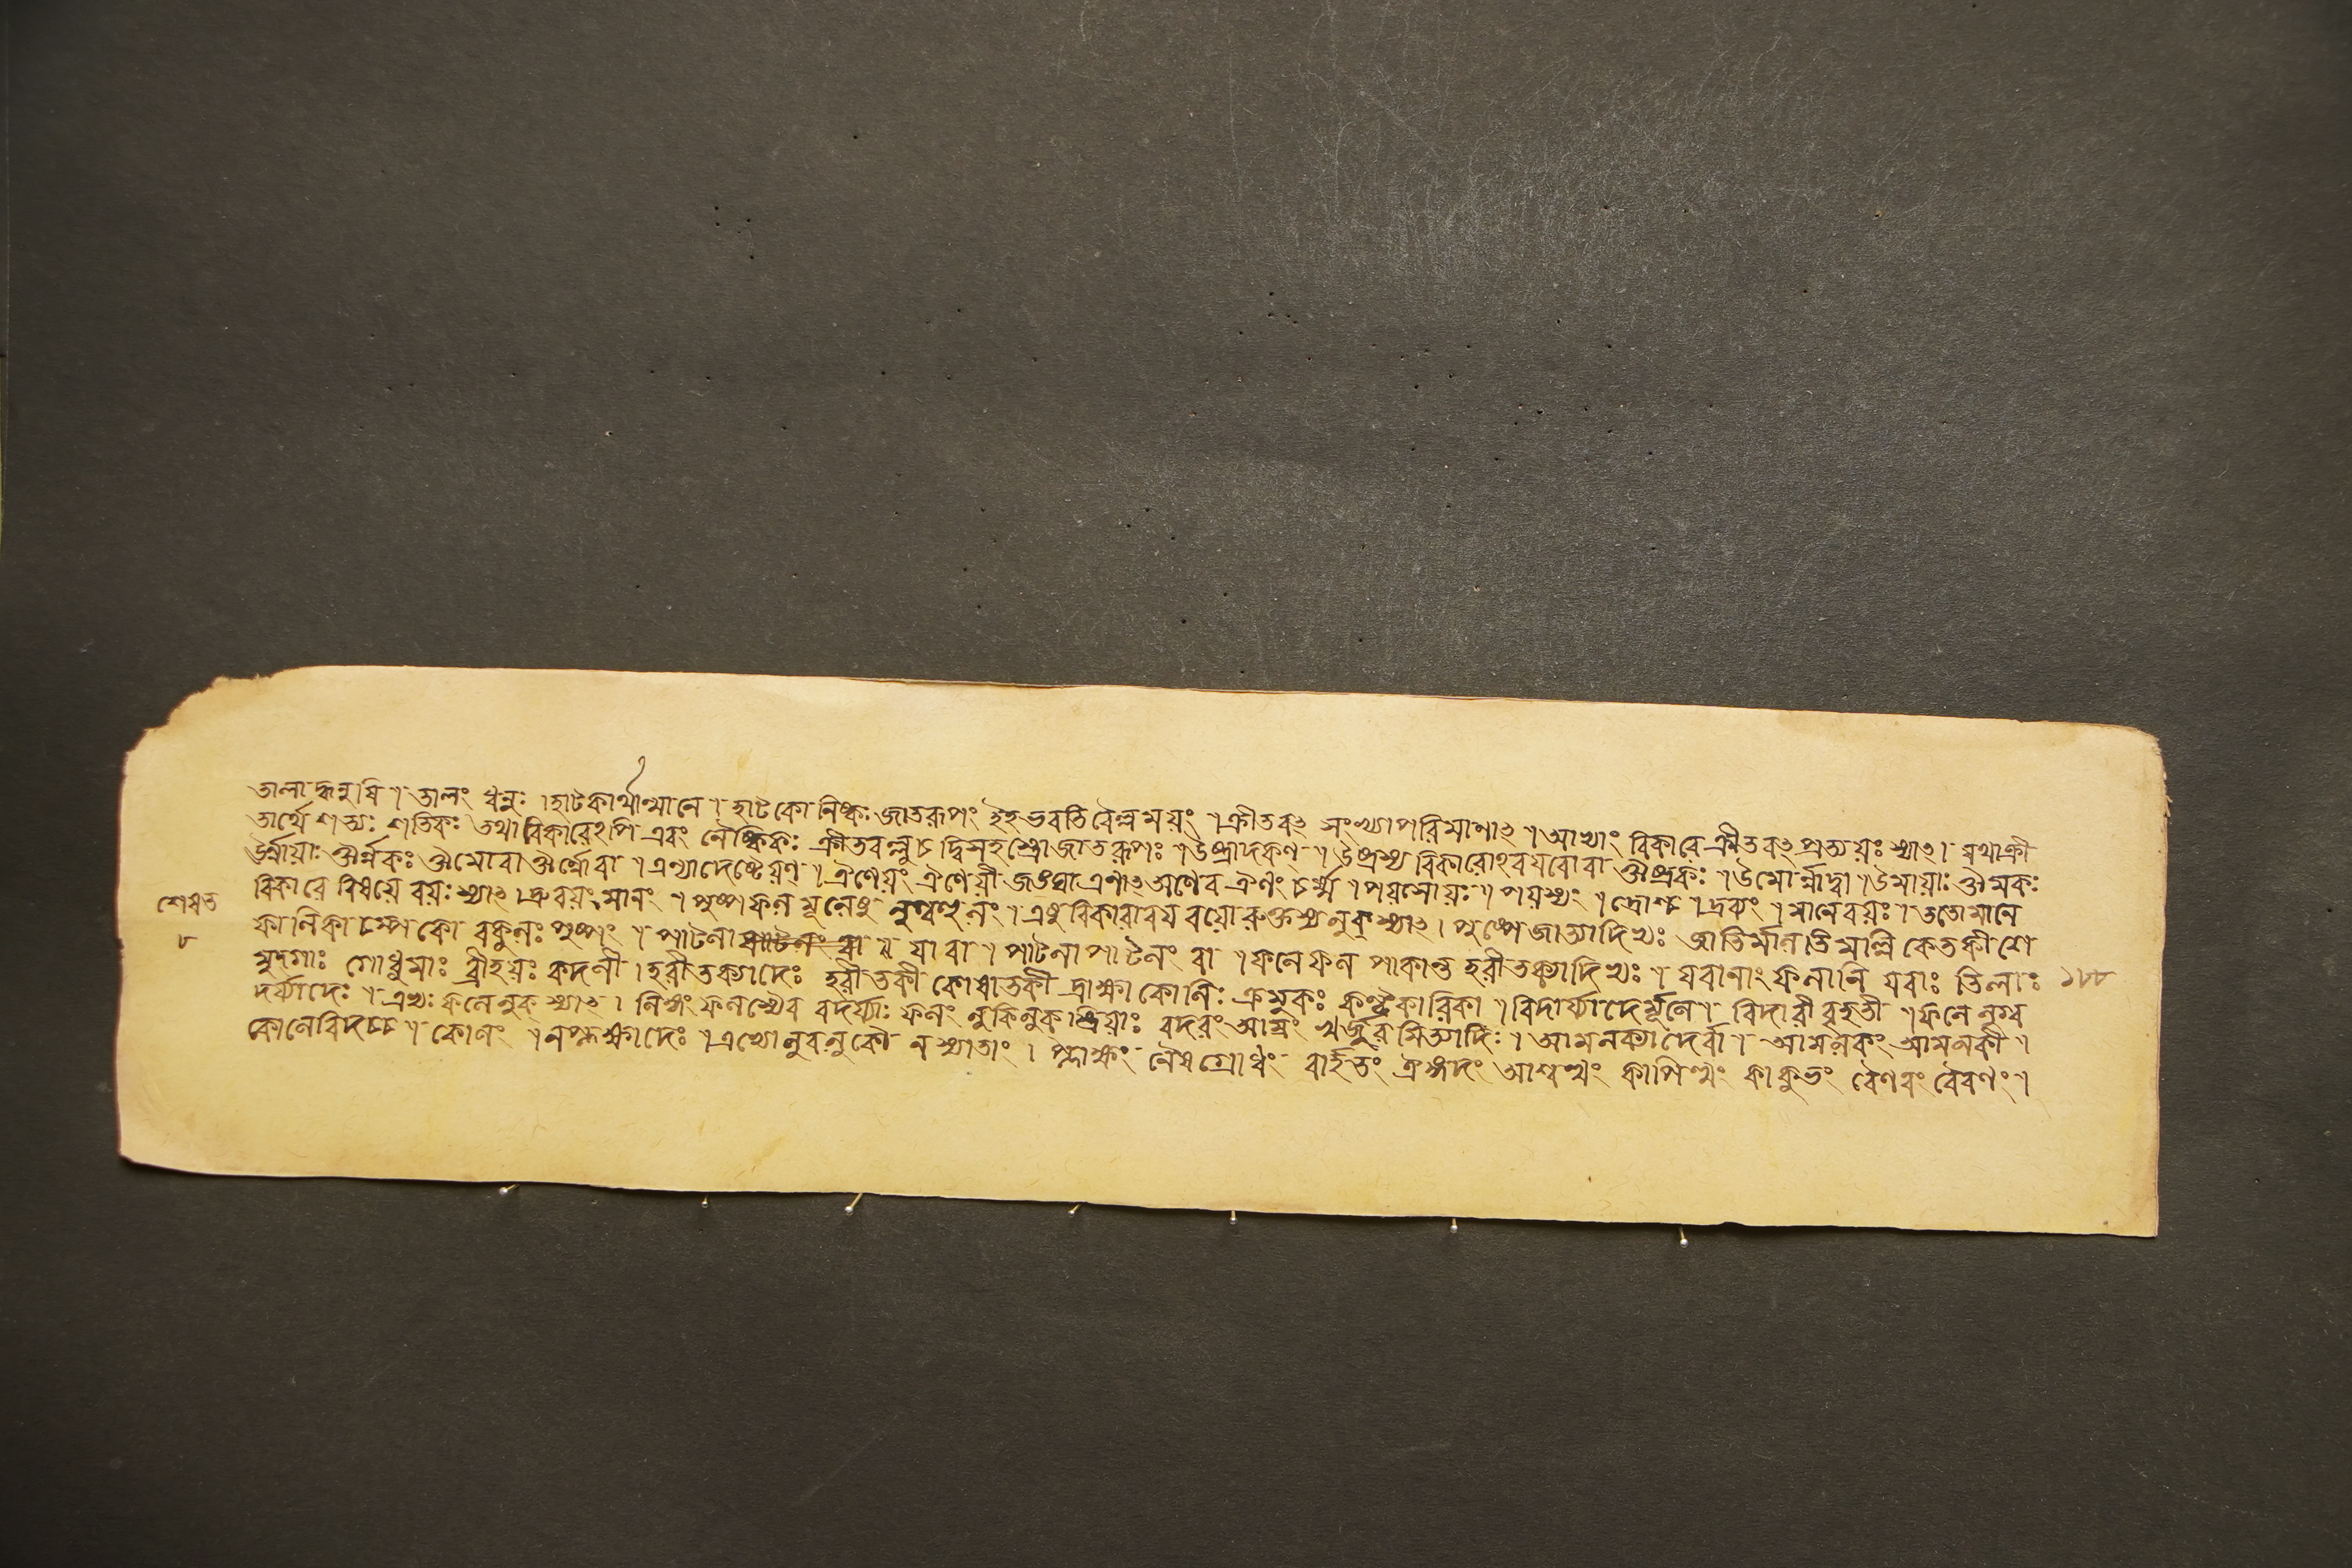 তালাদ্ধনুষি । তালং ধনুঃ । হাটকার্থান্মানে । হাটকো নিষ্কঃ জাতরূপং ইহ ভবতি বৈল্বময়ং । ক্রীতবৎ সংখ্যাপরিমাণাৎ । আভ্যাং বিকারে ক্রীতবৎ প্রত্যয়ঃ স্যাৎ । যথাক্রী
তার্থে শত্যঃ শতিকঃ তথা বিকারেঽপি এবং নৈষ্কিকঃ ক্রীতবল্লুচ দ্বিসহস্রো জাতরূপঃ । উষ্ট্রাদকণ্ । উষ্ট্রস্য বিকারোঽবয়বো বা ঔষ্ট্রকঃ । উমোর্ন্নাদ্বা । উমায়াঃ ঔমকঃ
ঊর্ন্নায়াঃ ঔর্ন্নকঃ ঔমো বা ঔর্ন্নো বা । এণ্যাদেষ্টেয়ণ্ । ঐণেয়ং ঐণেয়ী জঙ্ঘা এণাৎ অণেব ঐণং চর্ম্ম । পয়সোয়ঃ । পয়স্যং । দ্রোশ্চ । দ্রব্যং । মানে বয়ঃ । ততো মানে
বিকারে বিষয়ে বয়ঃ স্যাৎ । দ্রুবয়ং মানং । পুষ্পফলমূলেষু লুগ্বহুলং । এষু বিকারাবয়বয়োরুক্তস্য লুক্ স্যাৎ । পুষ্পে জাত্যাদিভ্যঃ জাতির্মালতি মাল্লি কেতকী শে
ফালিকা চম্পকো বকুলঃ পুষ্পং । পাটলা পাটলং বা ॥ য়া বা । পাটলা পাটলং বা । ফলে ফল পাকান্ত হরীতক্যাদিভ্যঃ । যবানাং ফলানি যবাঃ তিলাঃ
মুদ্গাঃ গোধুমাঃ ব্রীহয়ঃ কদলী । হরীতক্যাদেঃ হরীতকী কোষাতকী দ্রাক্ষা কোলিঃ ক্রমুকঃ কণ্টকারিকা । বিদার্য্যাদের্মূলে । বিদারী বৃহতী । ফলে লুগ্ব
দর্য্যাদেঃ । এভ্যঃ ফলে লুক্ স্যাৎ । নিত্যং ফলস্যৈব বদর্য্যাঃ ফলং লুকি লুক্ স্ত্রিয়াঃ বদরং আম্রং খর্জ্জুরমিত্যাদিঃ । আমলক্যাদের্বা । আমলকং আমলকী ।
কোলেবিদচ্চ । কোলং । ন প্লক্ষাদেঃ । এভ্যো লুবলুকৌ ন স্যাতাং । প্লাক্ষং নৈয়গ্রোধং বার্হতং ঐঙ্গুদং আশ্বত্থং কাপিত্থং কাকুভং বৈণবং বৈবণং ।
শেষত
৮
১৮৮